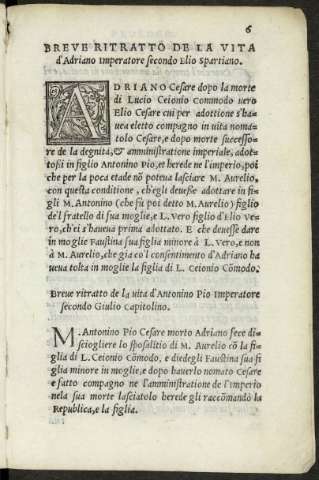 6
BREVE RITRATTO DE LA VITA
d'Adriano Imperatore secondo Elio Spartiano.
ADRIANO Cesare dopo la morte
di Lucio Ceionio commodo uero
Elio Cesare cui per adottione s'ha-
uea eletto compagno in uita noma-
tolo Cesare, e dopo morte successo-
re de la degnità, & amministratione imperiale, adot-
tossi in figlio Antonino Pio, et herede ne l'imperio, poi
che per la poca etade nō poteua lasciare M. Aurelio,
con questa conditione, ch'egli deuesse adottare in fi-
gli M. Antonino (che fu poi detto M. Aurelio) figlio
de'l fratello di sua moglie, e L. Vero figlio d'Elio Ve-
ro, ch'ei s'haueua prima adottato. E che deuesse dare
in moglie Faustina sua figlia minore à L. Vero, e non
à M. Aurelio, che gia co'l consentimento d'Adriano ha
ueua tolta in moglie la figlia di L. Ceionio Cōmodo.
Breue ritratto de la uita d'Antonino Pio Imperatore
secondo Giulio Capitolino.
M. Antonino Pio Cesare morto Adriano fece di-
sciogliere lo sposalitio di M. Aurelio cō la fi-
glia di L. Ceionio Cōmodo, e diedegli Faustina sua fi
glia minore in moglie, e dopo hauerlo nomato Cesare
e fatto compagno ne l'amministratione de l'Imperio
ne la sua morte lasciatolo herede gli raccōmandò la
Republica, e la figlia.